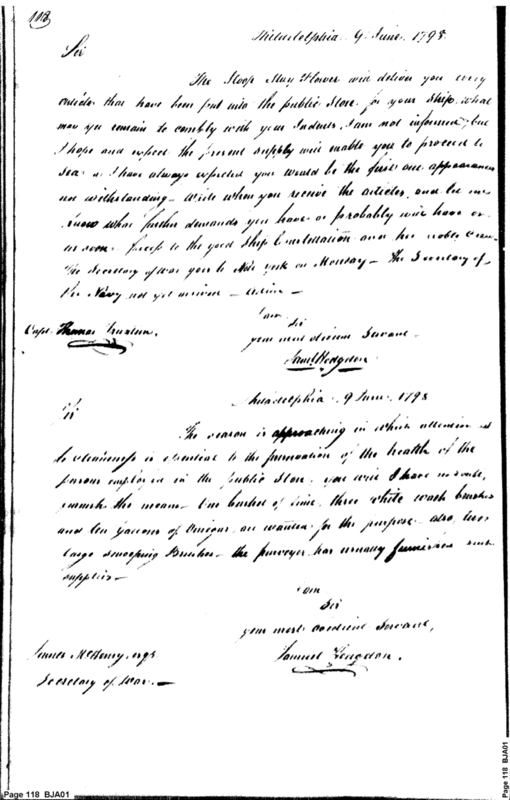 118
Philadelphia 9 June 1798
Sir
The Sloop May Flower will deliver you every
articles that have been put into the public Store for your Ship. what
may yet remain to comply with your Indents, I am not informed, but
I hope and expect the present supply will enable you to proceed to
sea as I have always expected you would be the first out appearances
not withstanding - write when you receive the articles, and let me
know what further demands you have or probably will have or
soon. success to the good Ship Constellation and her noble Crew.
The Secretary of War goes to New York on Monday - The Secretary of
the Navy not yet arrived - adieu -
I am
Sir
your most obedient Servant
Capt. Thomas Truxtun.
Saml Hodgdon
Philadelphia 9 June 1798
Sir
The season is approaching in which attention
to cleanliness is essential to the preservation of the health of the
persons employed in the public Store. you will I have no doubt,
furnish the means - One bushel of Lime, three white wash brushes
and ten gallons of Vinegar, are wanted for the purpose. also, two
large sweeping Brushes - the purveyor has usually furnished such
supplies -
I am
Sir
your most obedient Servant,
James McHenry, esqr
Samuel Hodgdon.
Secretary of War. -
Page 118 BJA01
Page 118 BJA01